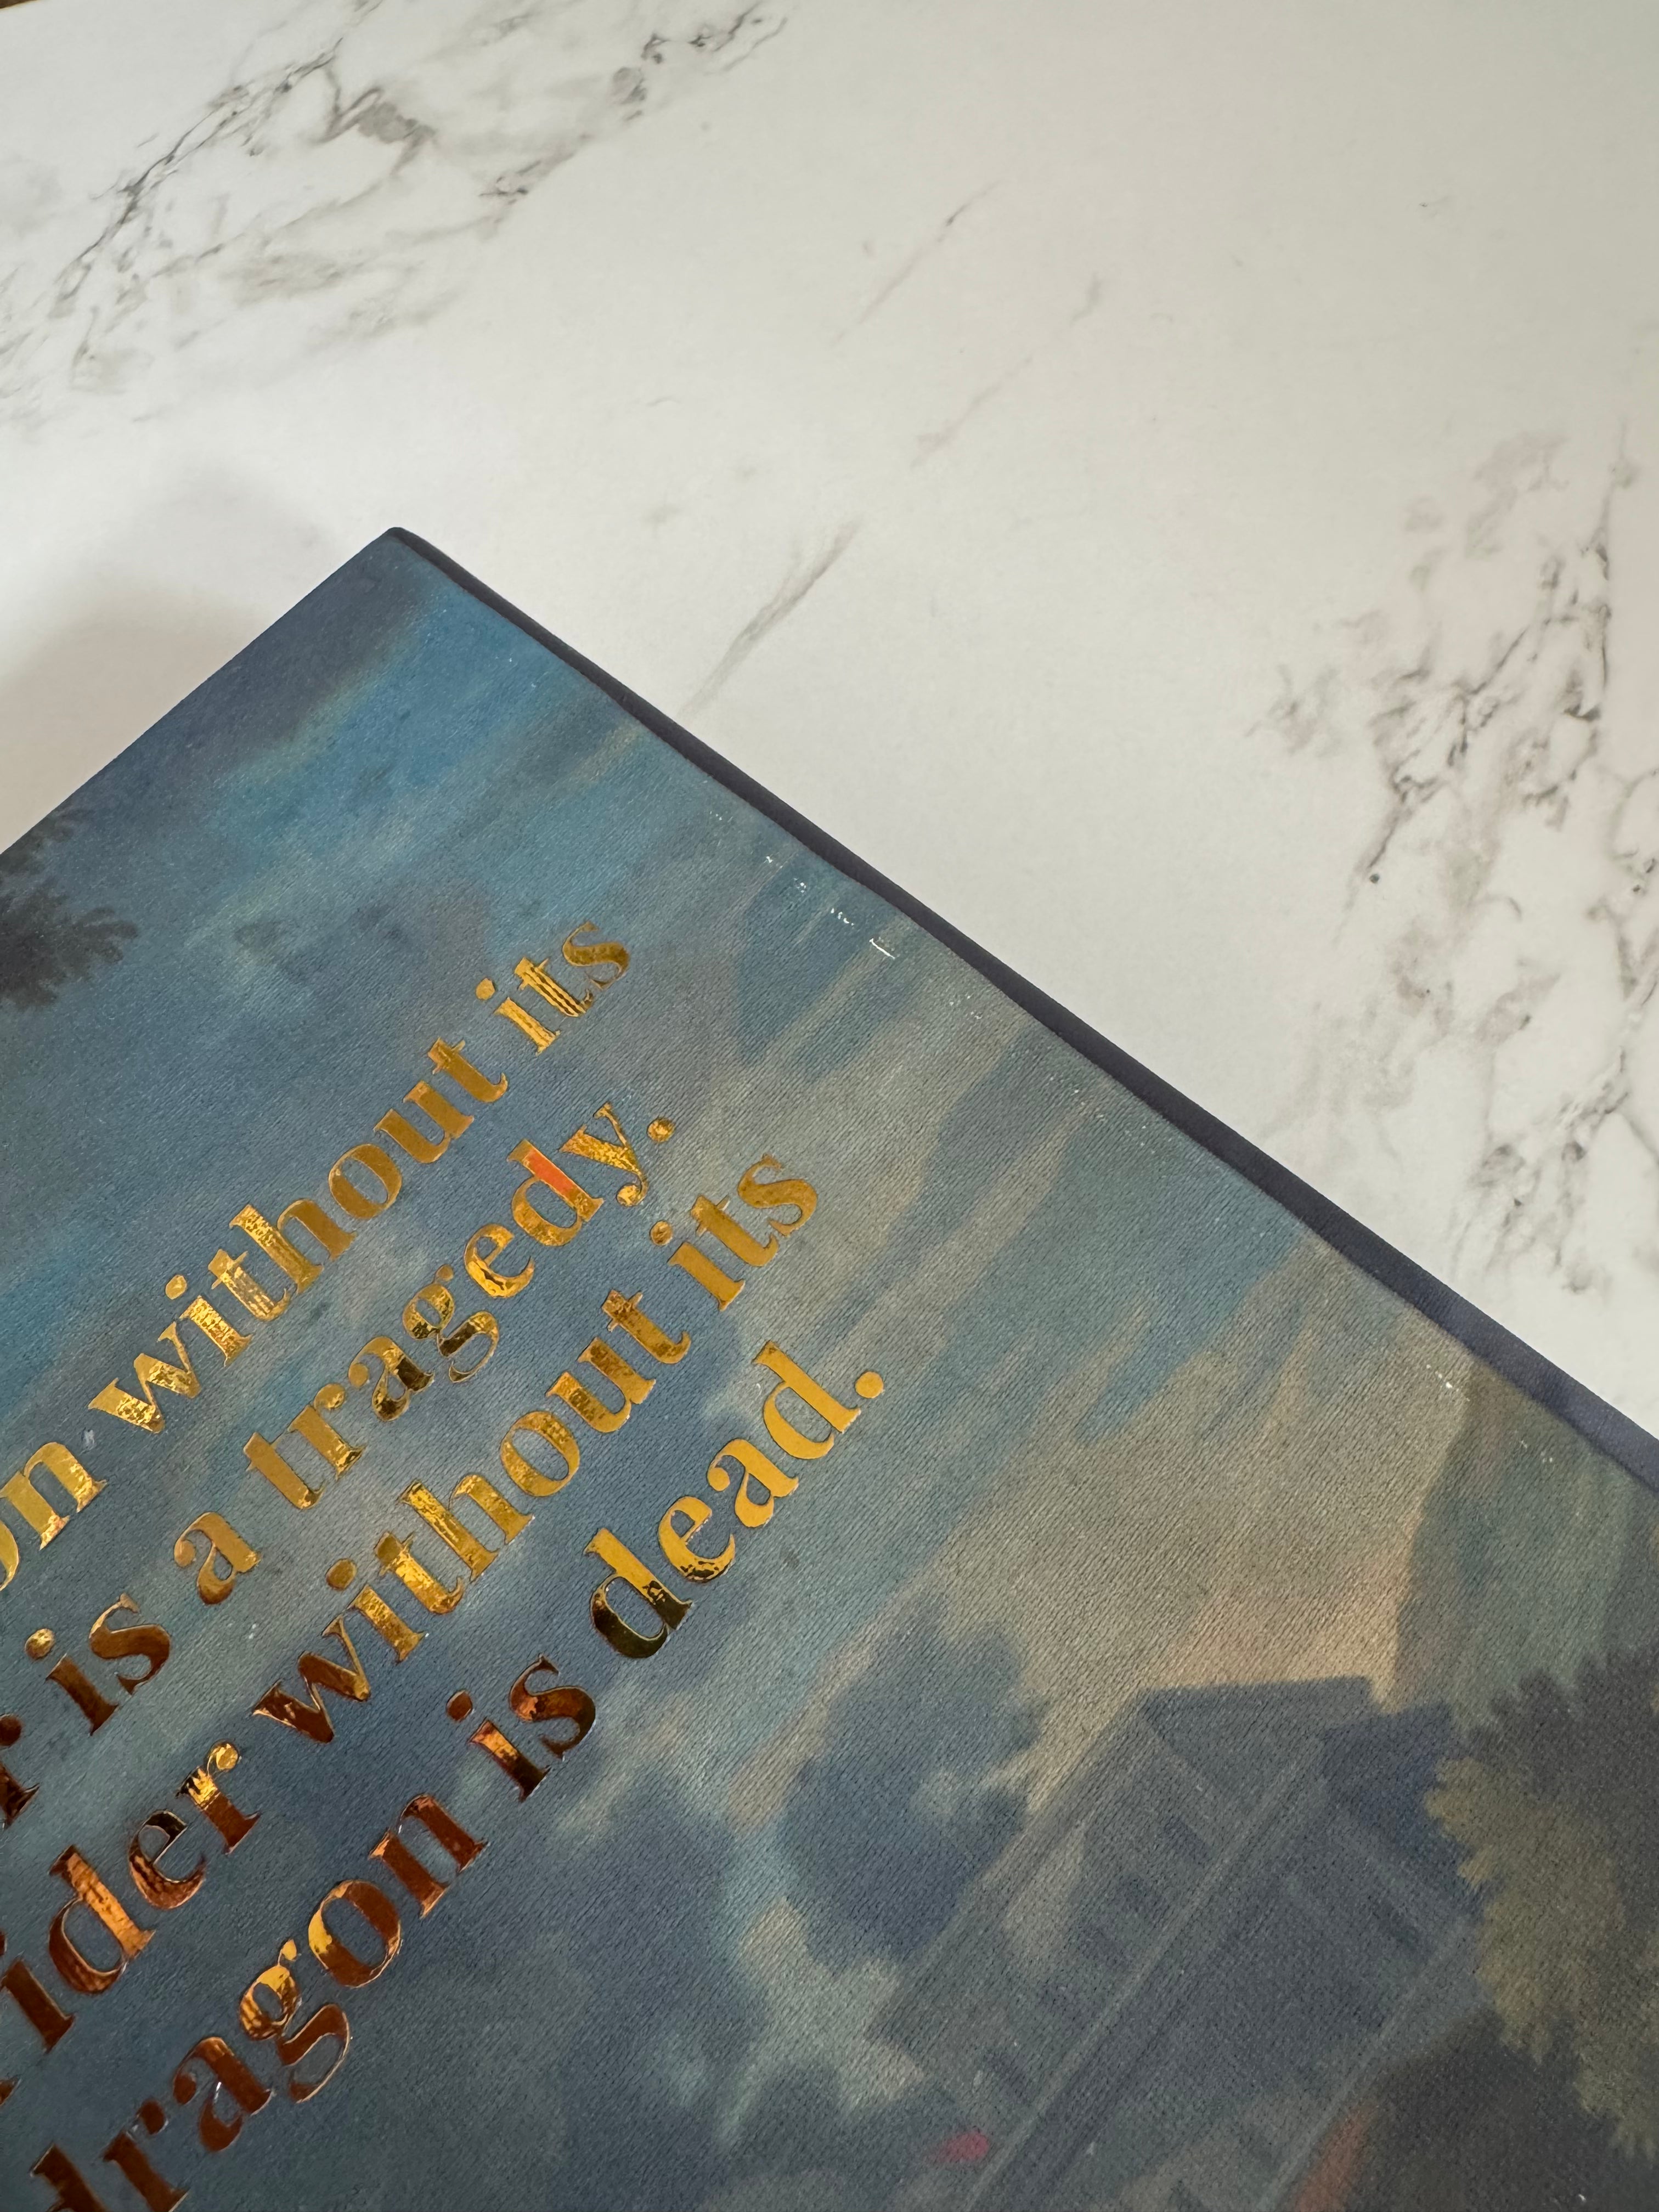 on without its
is a tragedy.
rider without its
dragon is dead.